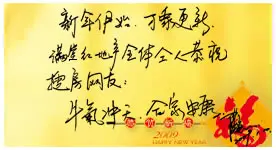 新年伊始，万象更新，
满堂红地产全体仝人恭祝
搜房网友：
牛氣冲天、合家安康
恭贺新禧
2009
HAPPY NEW YEAR